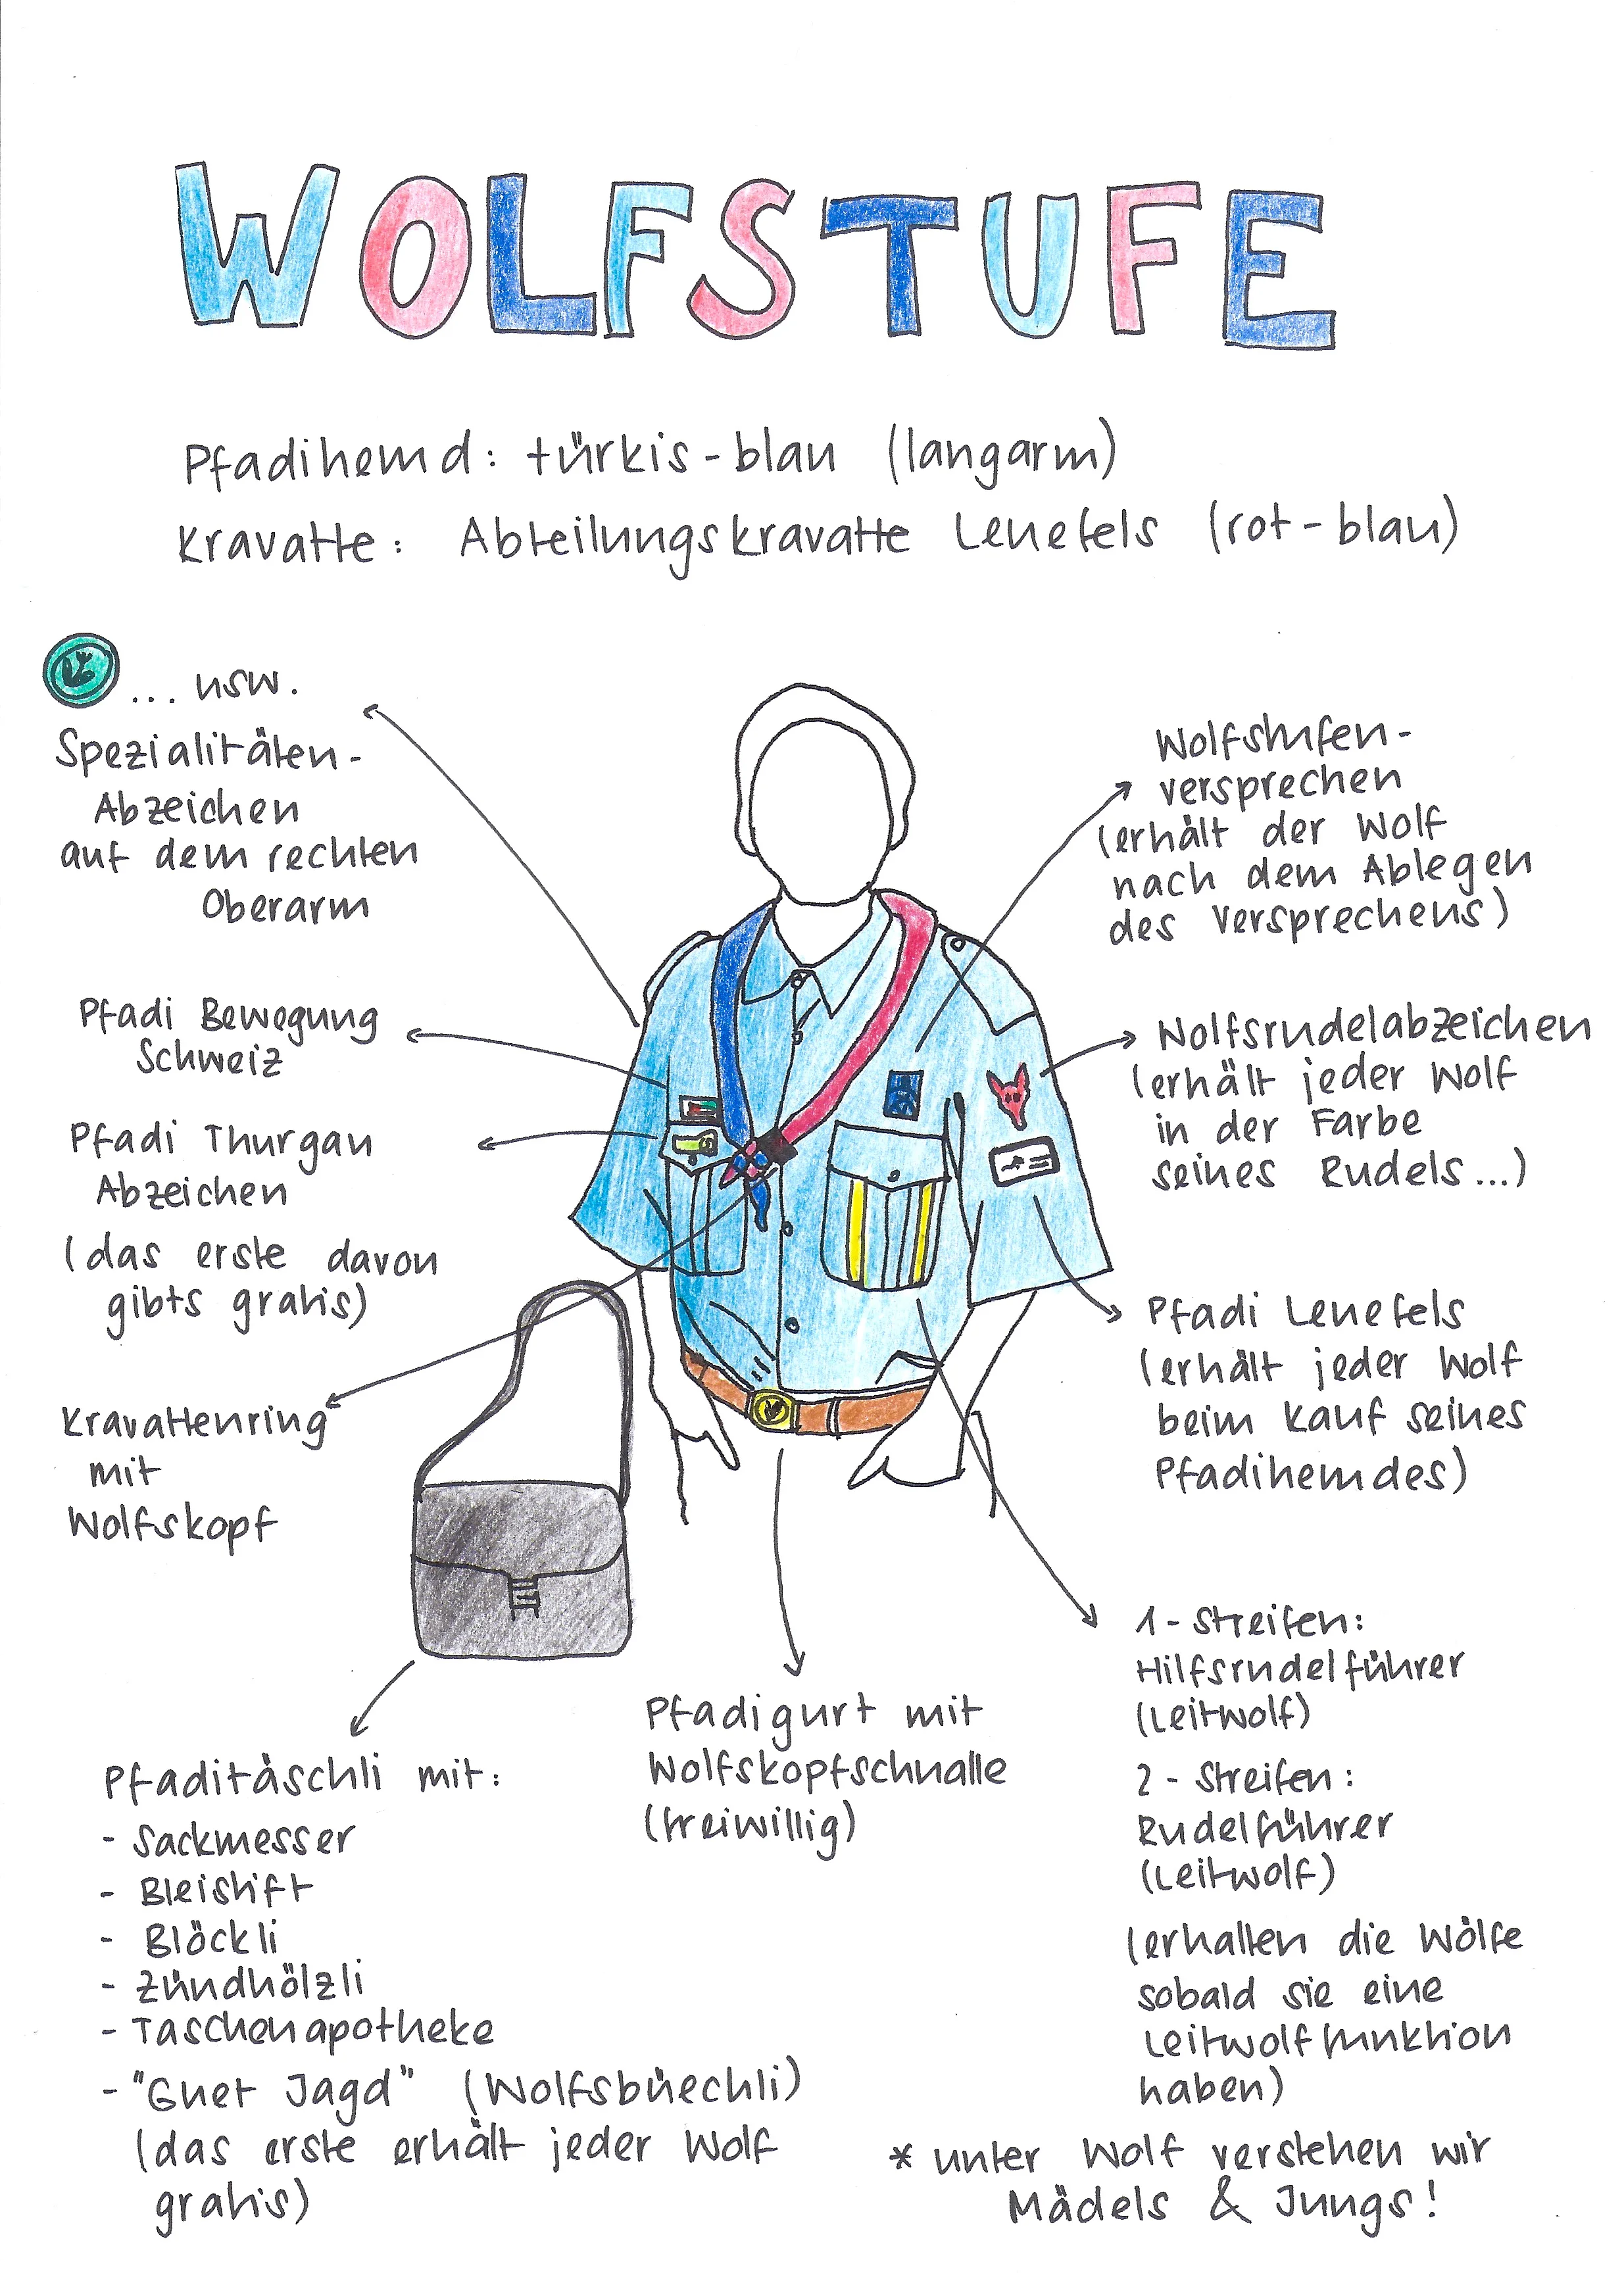 WOLFSTUFE
Pfadihemd: türkis-blau (langarm)
Kravatte: Abteilungskravatte Leuefels (rot-blau)
... usw.
Spezialitäten-
Abzeichen
auf dem rechten
Oberarm
Pfadi Bewegung
Schweiz
Pfadi Thurgau
Abzeichen
(das erste davon
gibts gratis)
Kravattenring
mit
Wolfskopf
Pfaditäschli mit:
- Sackmesser
- Bleistift
- Blöckli
- Zündhölzli
- Taschenapotheke
- "Guet Jagd" (Wolfsbüechli)
(das erste erhält jeder Wolf
gratis)
Pfadigurt mit
Wolfskopfschnalle
(freiwillig)
Wolfstufen-
versprechen
(erhält der Wolf
nach dem Ablegen
des Versprechens)
Wolfsrudelabzeichen
(erhält jeder Wolf
in der Farbe
seines Rudels...)
Pfadi Leuefels
(erhält jeder Wolf
beim Kauf seines
Pfadihemdes)
1-Streifen:
Hilfsrudelführer
(Leitwolf)
2-Streifen:
Rudelführer
(Leitwolf)
(erhalten die Wölfe
sobald sie eine
Leitwolffunktion
haben)
* unter Wolf verstehen wir
Mädels & Jungs!